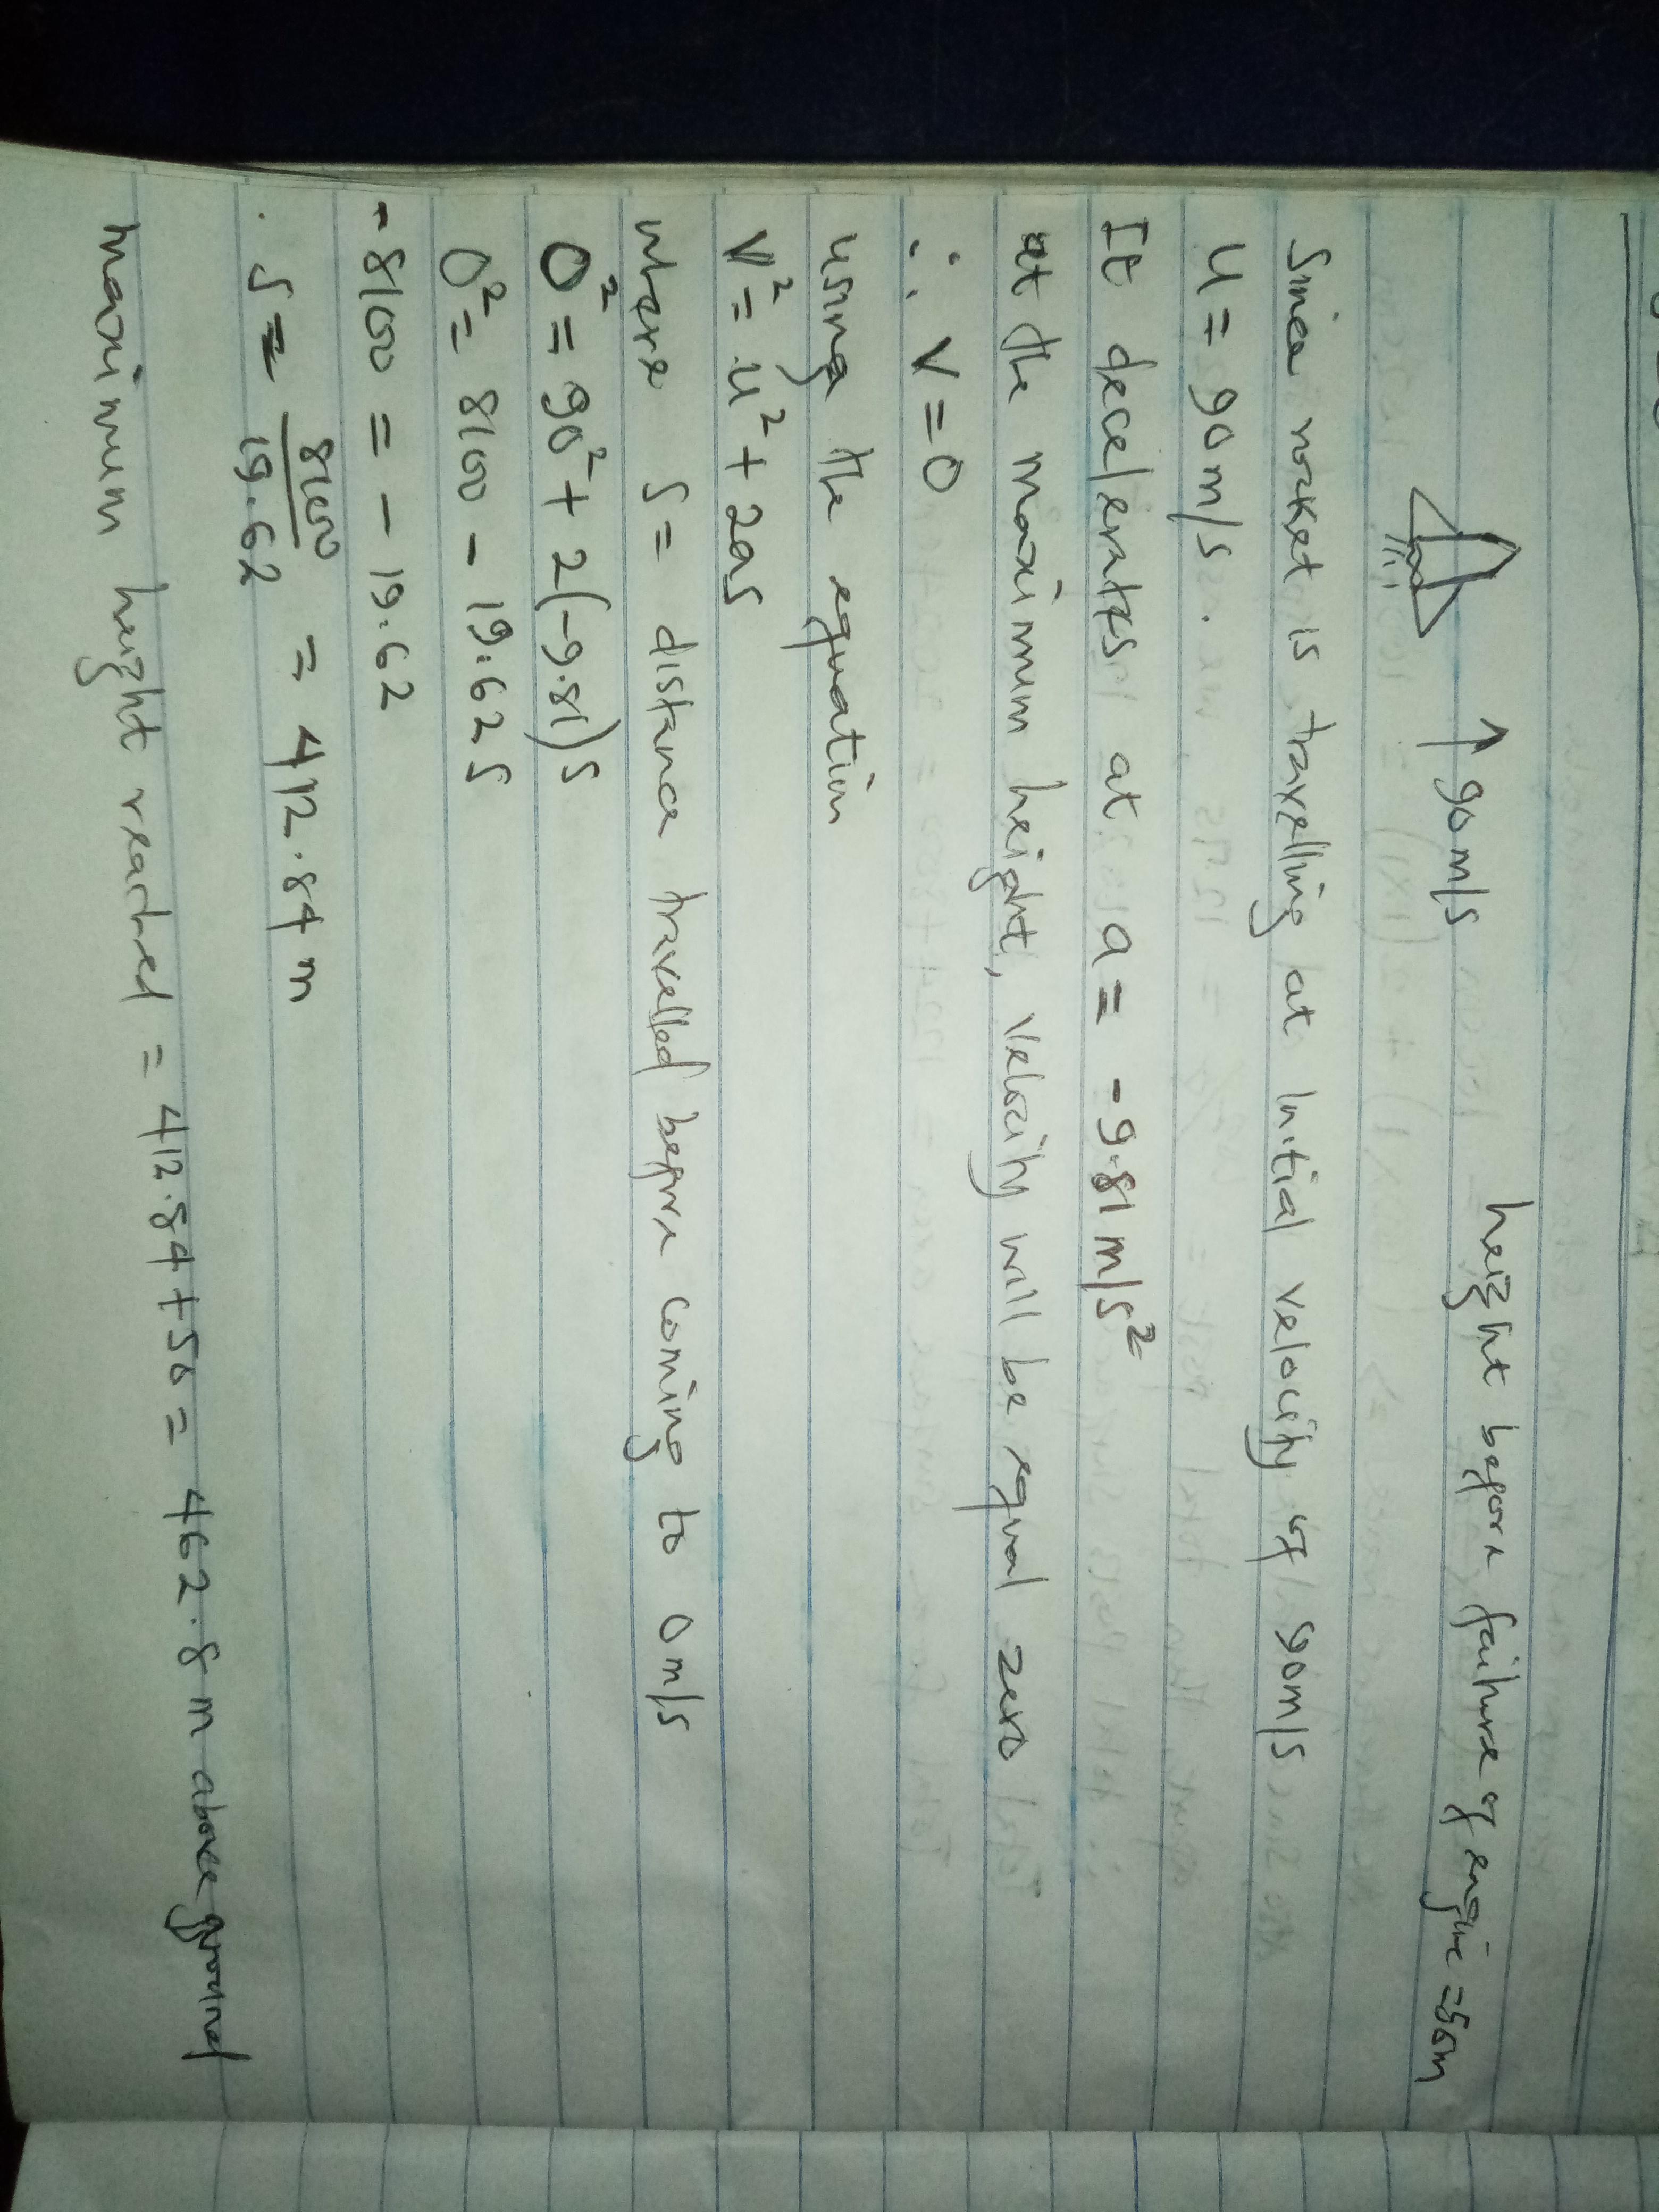 ↑ 90m/s height before failure of engine = 50m
Since rocket is travelling at Initial velocity of 90m/s
u = 90m/s.
It decelerates at a = -9.81m/s²
at the maximum height, velocity will be equal zero
∴ V = 0
using the equation
V² = u² + 2as
where s = distance travelled before coming to 0m/s
0² = 90² + 2(-9.81)s
0² = 8100 - 19.62s
-8100 = -19.62
s = 8100/19.62 = 412.84m
maximum height reached = 412.84 + 50 = 462.8m above ground